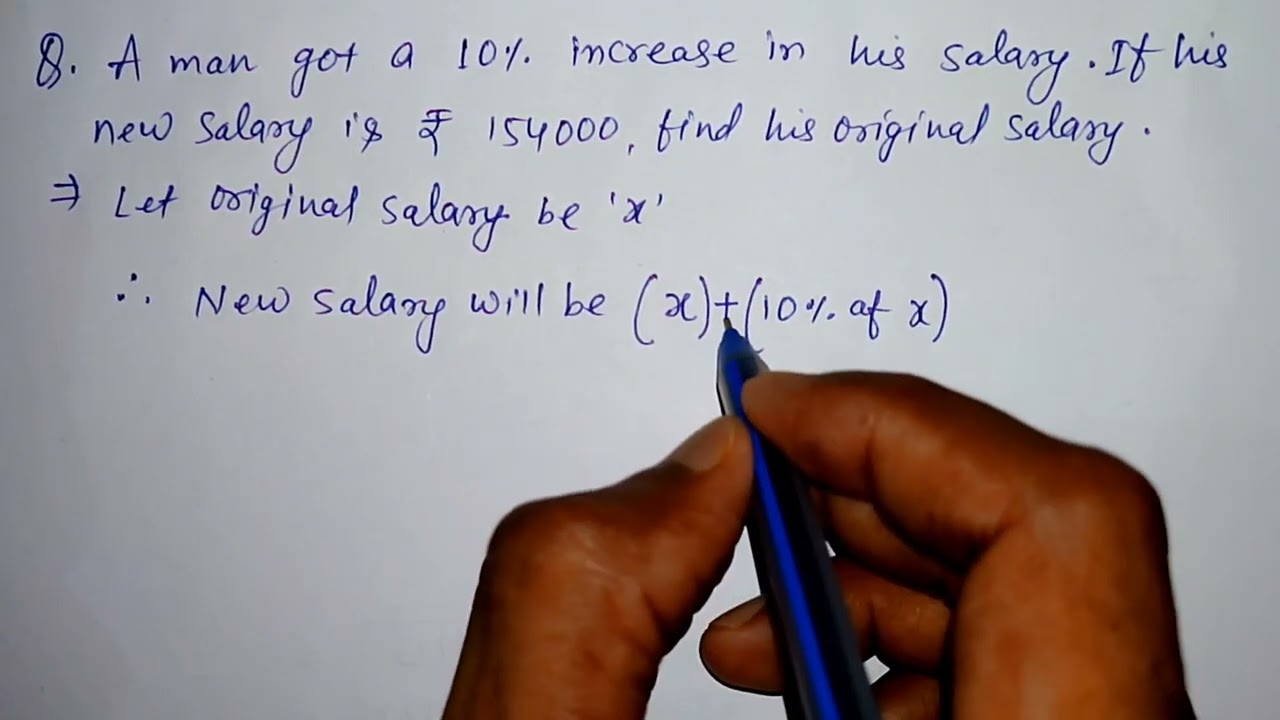 Q. A man got a 10% increase in his salary. If his
new salary is ₹ 154000, find his original salary.
⇒ Let original salary be 'x'
∴ New salary will be (x)+(10% of x)